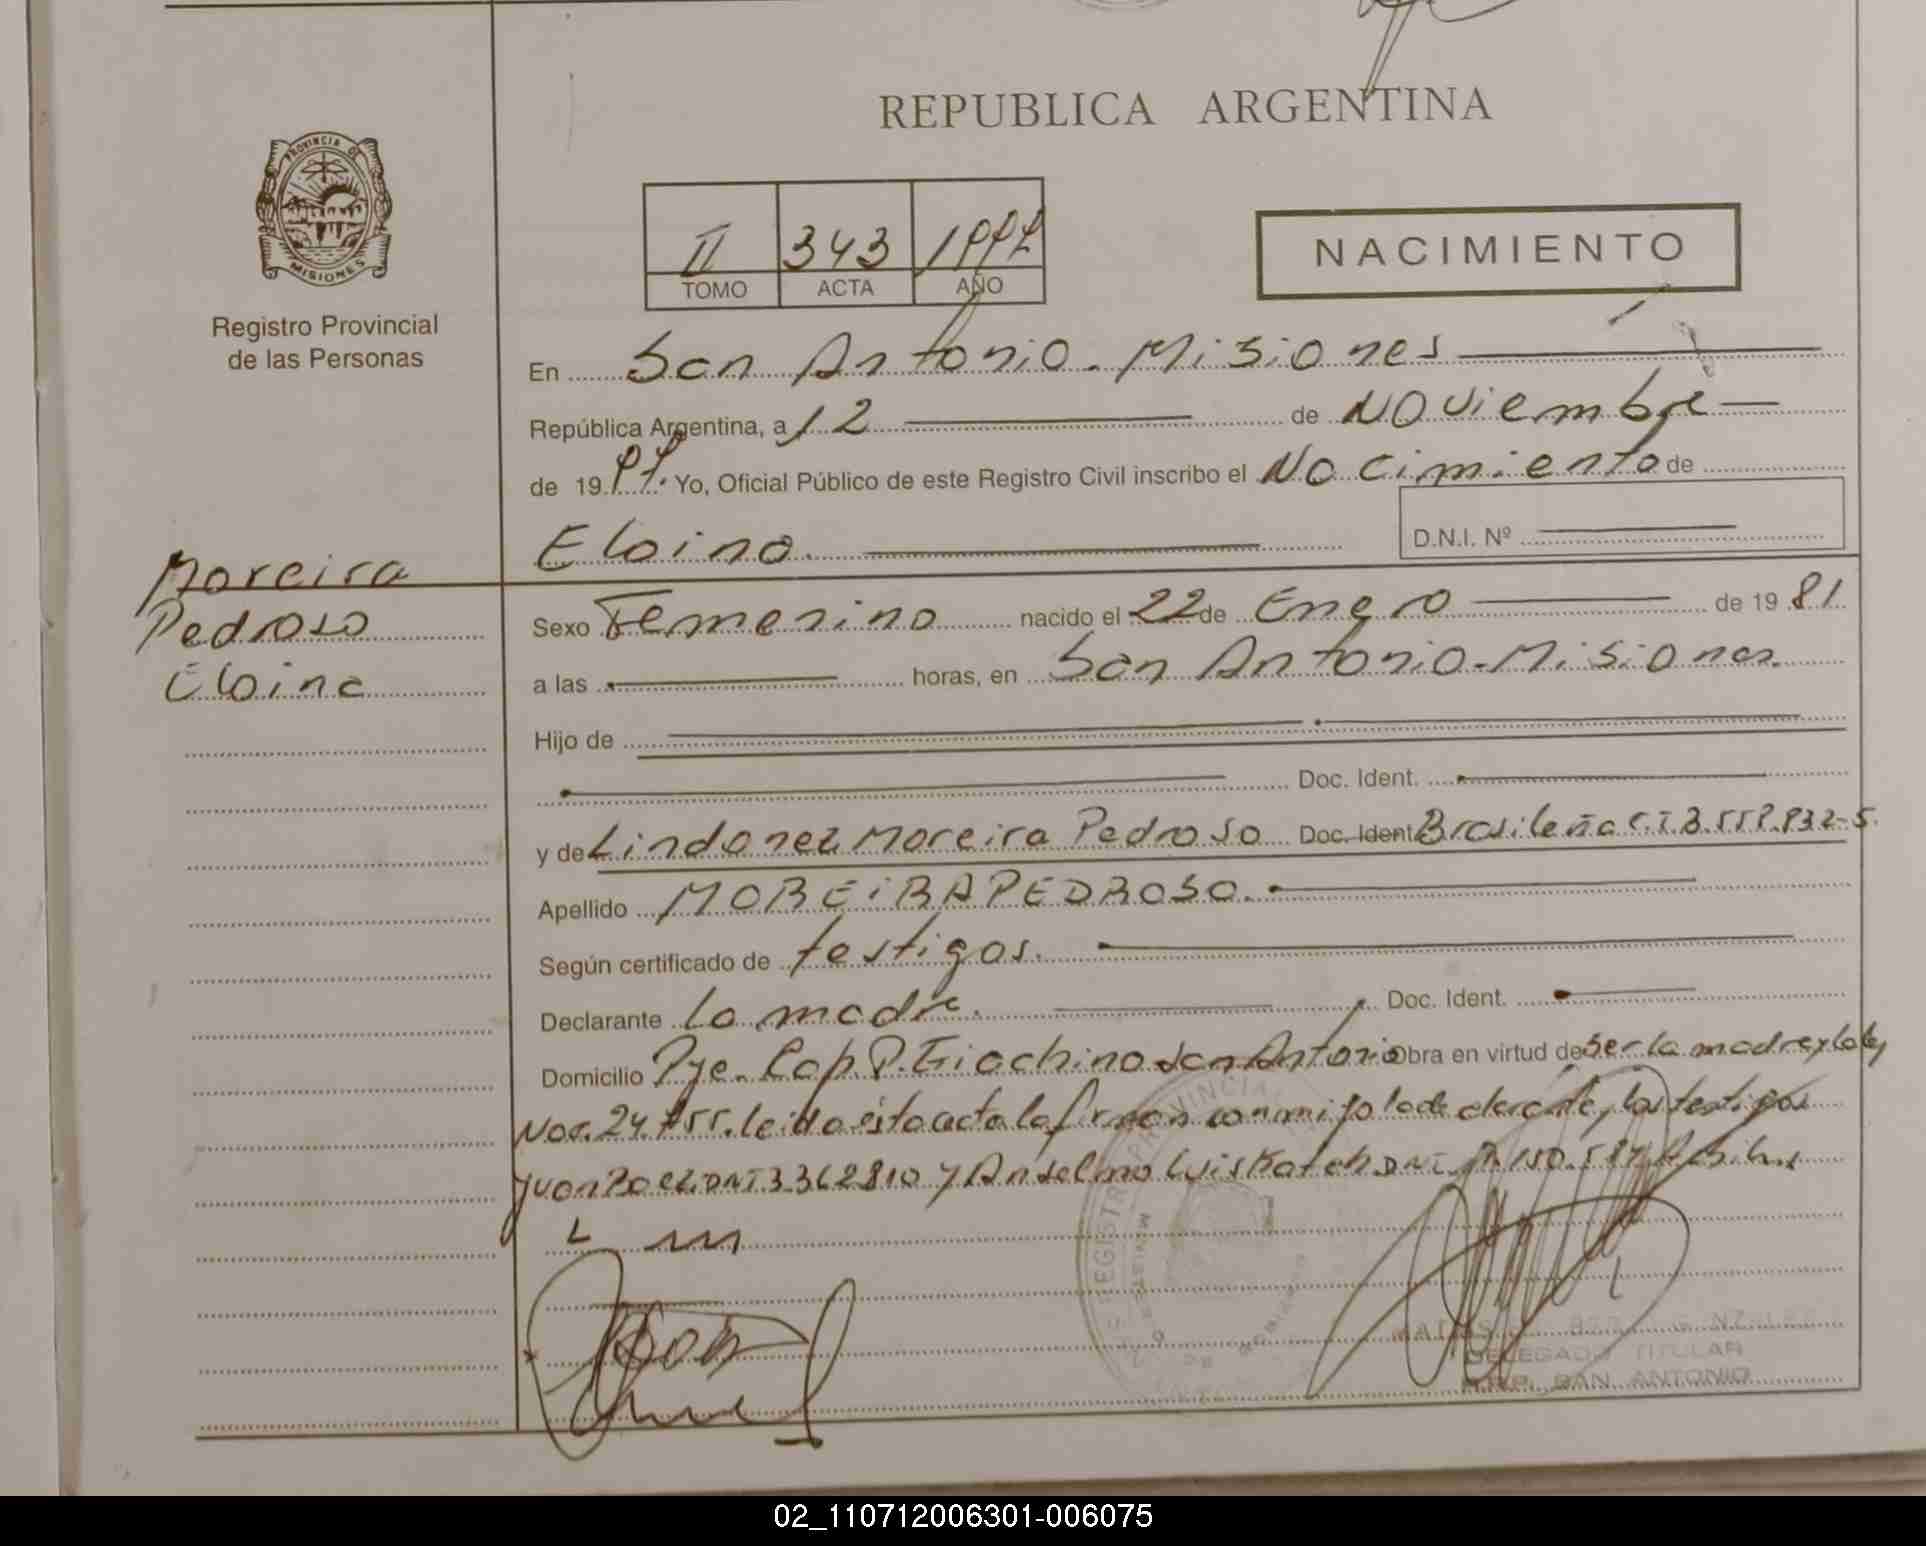 REPUBLICA ARGENTINA
PROVINCIA DE
MISIONES
Registro Provincial
de las Personas
II 343
TOMO ACTA AÑO
NACIMIENTO
En San Antonio. Misiones
República Argentina, a 12 de Noviembre
de 19 Yo, Oficial Público de este Registro Civil inscribo el Nacimiento de
Eloina.
D.N.I. Nº
Moreira
Pedroso
Eloina
Sexo Femenino nacido el 22 de Enero de 19 81
a las horas, en San Antonio-Misiones.
Hijo de
Doc. Ident.
y de Lindonez Moreira Pedroso Doc. Ident Brasileña C.I.
Apellido MOREIRA PEDROSO.
Según certificado de testigos.
Declarante la madre. Doc. Ident.
Domicilio Pje. Cap. P. Giachino San Antonio Obra en virtud de ser la madre y la ley
Nac. leida ésta acta la firman conmigo la testigos
Juan DNI 3362810 y Anselmo Luis DNI
REGISTRO PROVINCIAL
DELEGADO TITULAR
R.P.P. SAN ANTONIO
02_110712006301-006075